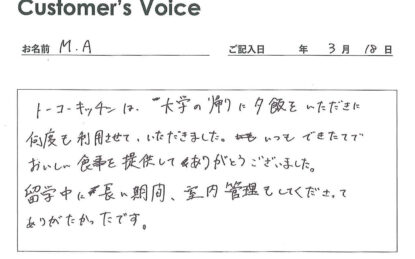 Customer's Voice
お名前 M.A ご記入日 年 3 月 18 日
トーコーキッチンは、大学の帰りに夕飯をいただきに
何度も利用させて、いただきました。いつもできたてで
おいしい食事を提供してありがとうございました。
留学中に長い期間、室内管理もしてくださって
ありがたかったです。